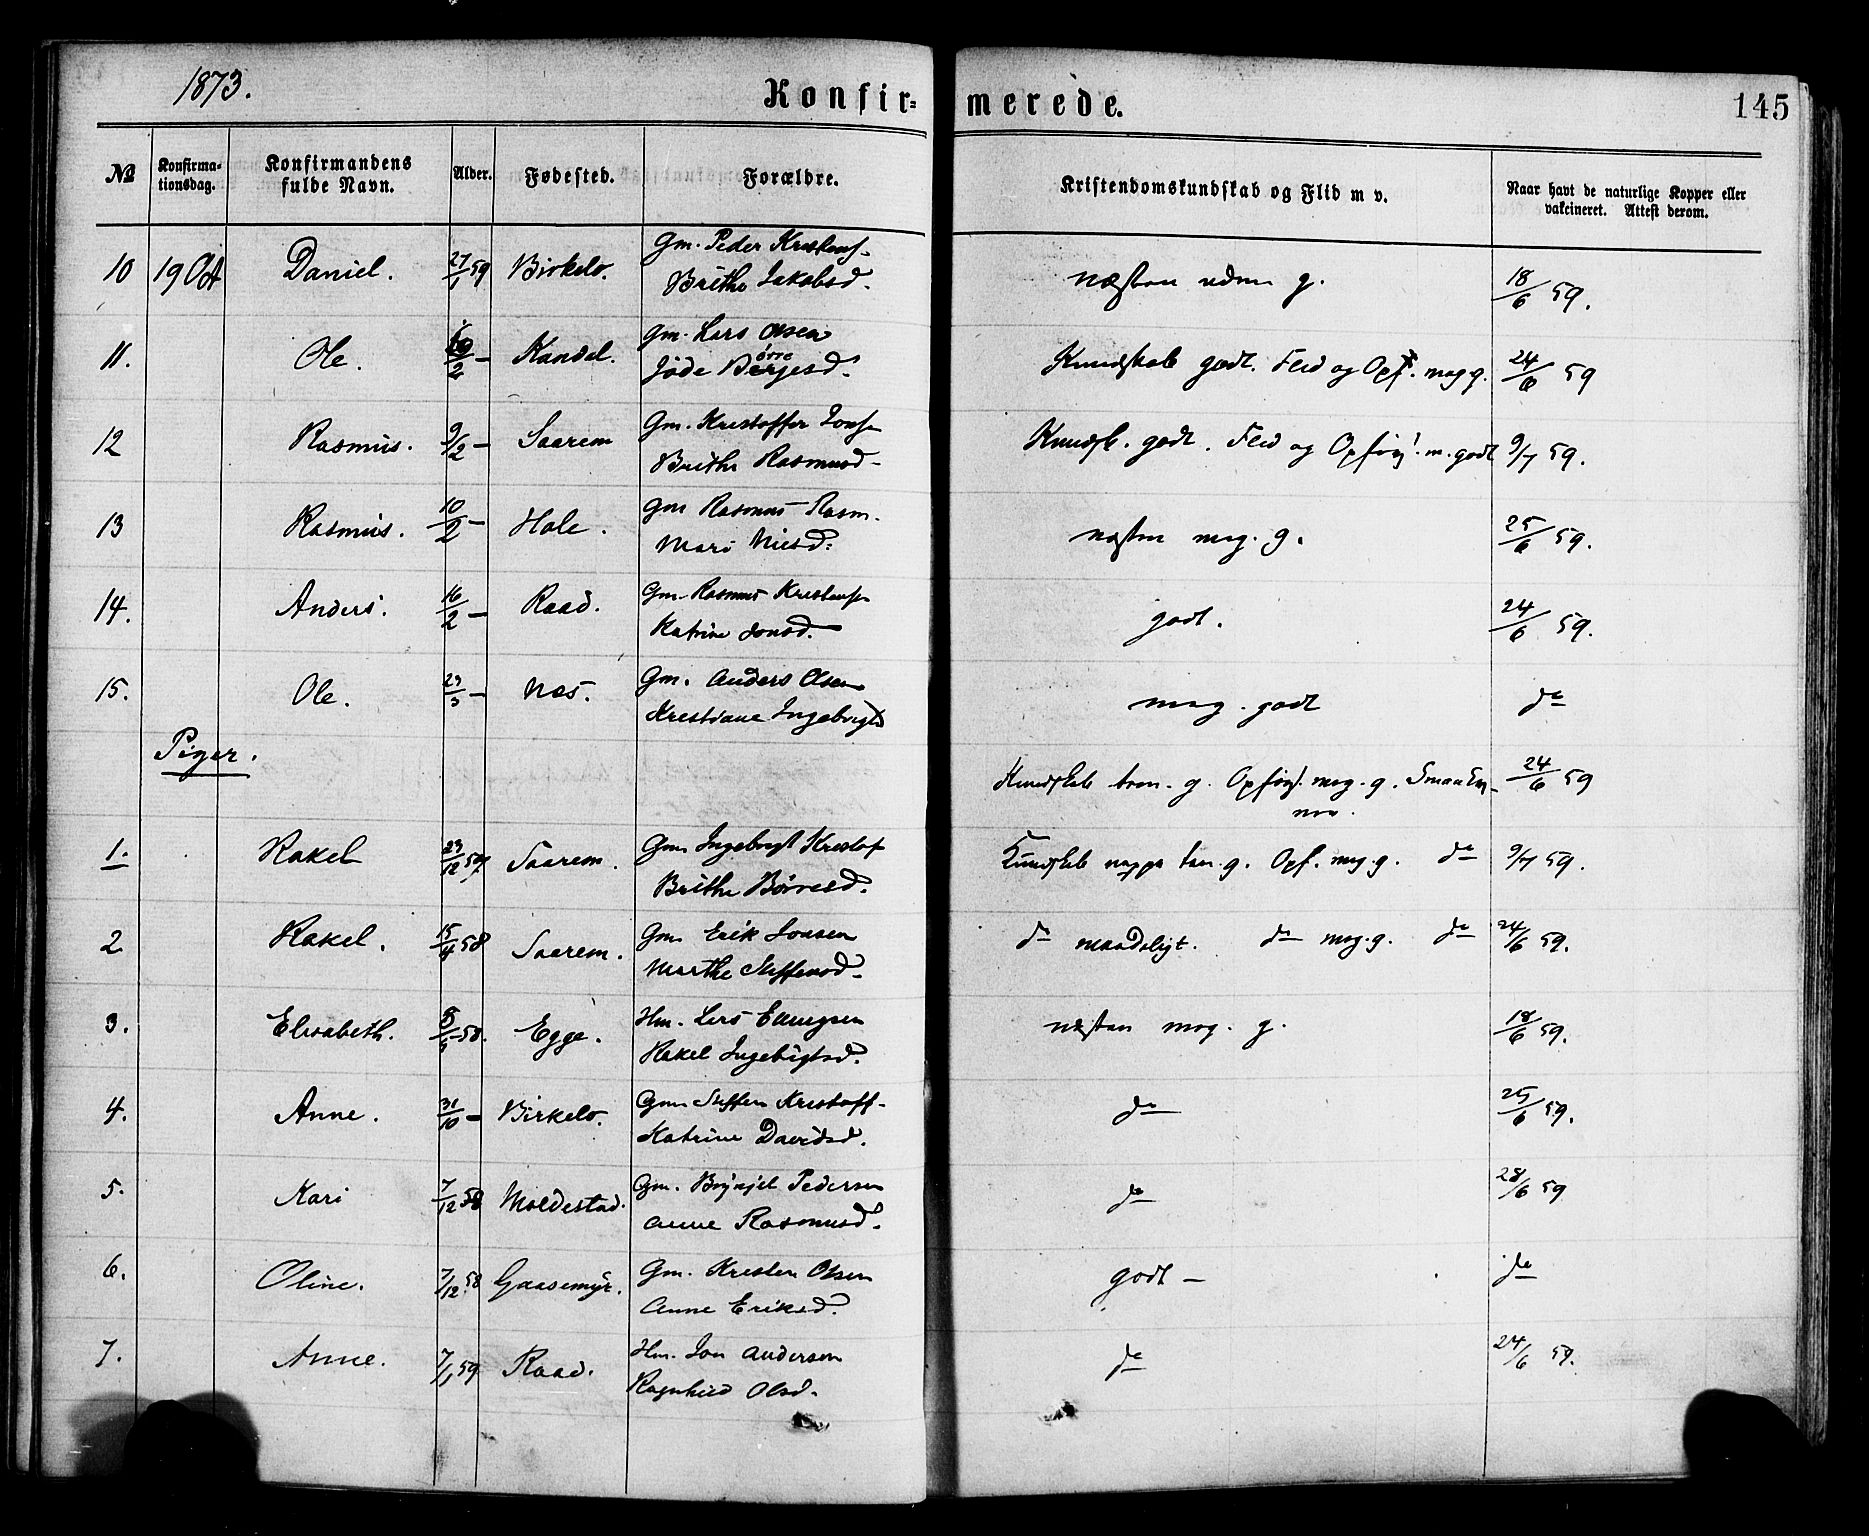 1873.
Konfir= merede. 145
№ Konfirma-tionsdag. Konfirmandens fulde Navn. Alder. Fødested. Forældre. Kristendomskundskab og Flid m v. Naar havt de naturlige Kopper eller vakcineret. Attest derom.
10 19 Oct Daniel. 27/1 59 Birkelo. Gm. Peder Kristens. næsten udm. g. 18/6 59.
Brithe Jakobsd.
11. Ole. /2 – Kandal. Gm. Lars Olsen Kundskab godt. Flid og Opf. meg g. 24/6 59
Jøde Børresd.
12 Rasmus. 9/2 – Saarem Gm. Kristoffer Jons. Kundsk. godt. Flid og Opførs. m. godt 9/7 59.
Brithe Rasmusd.
13 Rasmus. 10/2 – Hole. Gm Rasmus Rasm. næsten meg. g. 25/6 59.
Mari Nilsd.
14. Anders. 16/2 – Raad. Gm. Rasmus Kristens. godt. 24/6 59.
Katrine Jonsd.
15. Ole. 23/3 – Næs. Gm. Anders Olsen meg. godt do
Kristiane Ingebrigtsd
Piger.
Kundskab tem. g. Opførs. meg. g. 24/6 59
1. Rakel 23/12 57. Saarem. Gm. Ingebrigt Kristof Kundskab neppe tem. g. Opf. meg. g. do 9/7 59.
Brithe Børresd.
2 Rakel. 15/4 58 Saarem. Gm. Erik Jonsen do maadeligt. do meg. g. do 24/6 59.
Marthe Steffensd.
3. Elisabeth. 58. Egge. Hm. Lars næsten meg. g. 18/6 59.
Rakel Ingebrigtsd.
4. Anne. 31/10 – Birkelo. Gm Steffen Kristoff. do 25/6 59.
Katrine Davidsd.
5. Kari 7/12 58 Moldestad. Gm. Brynjel Pedersen do 28/6 59
Anne Rasmusd.
6. Oline. 7/12 58 Gaasemyr. Gm. Kristen Olsen godt – do
Anne Eriksd.
7. Anne. 7/1 59 Raad. Hm. Jon Andersen do 24/6 59.
Ragnhild Olsd.